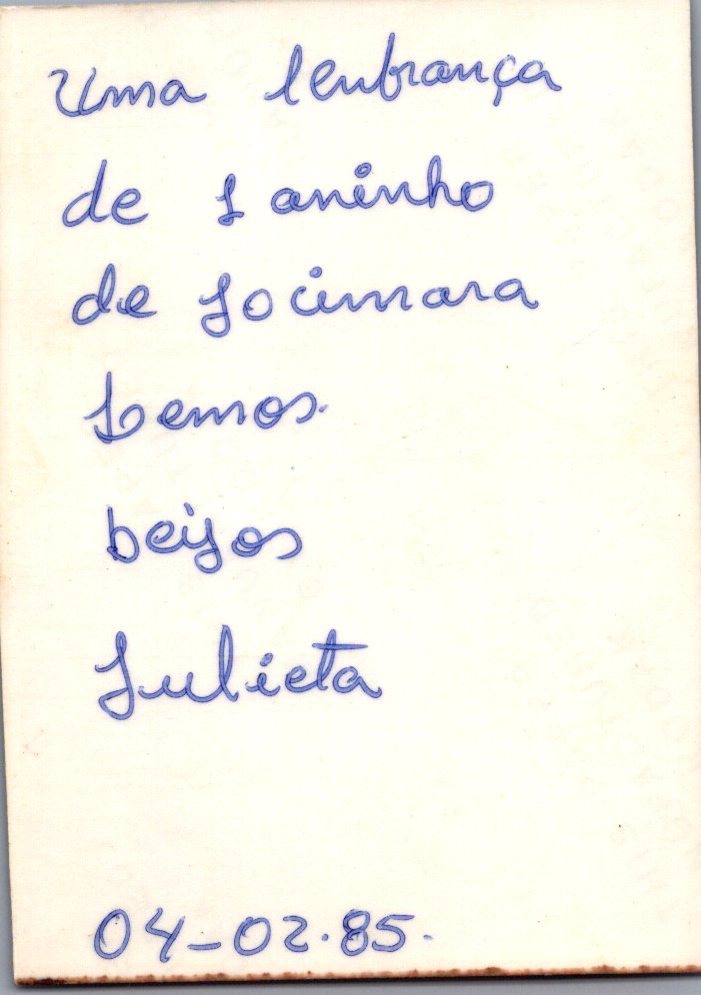 Uma lenbrança
de 1 aninho
de Jocimara
Lemos.
beijos
Julieta
04-02.85.